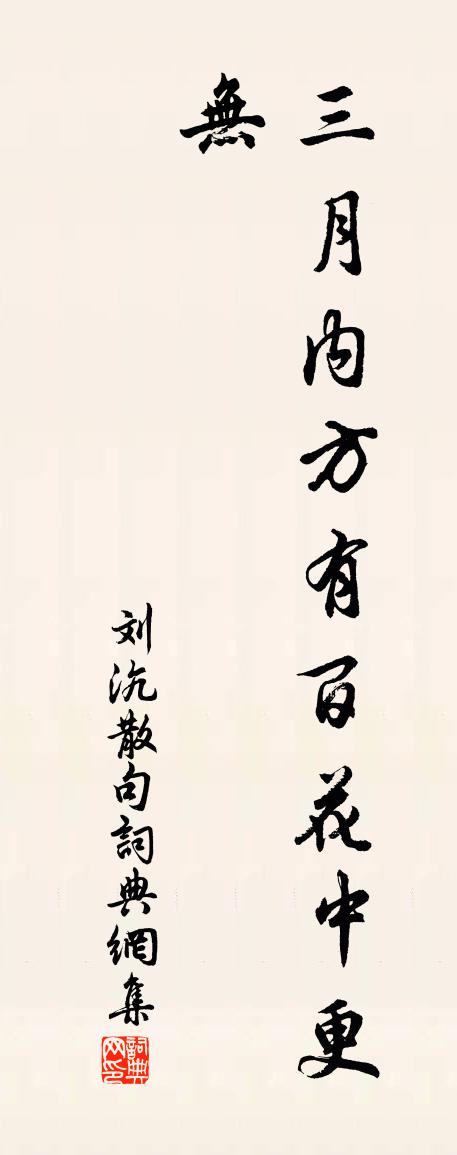 三月内方有百花中更
無
刘沆散句詞典網集
詞典
网印